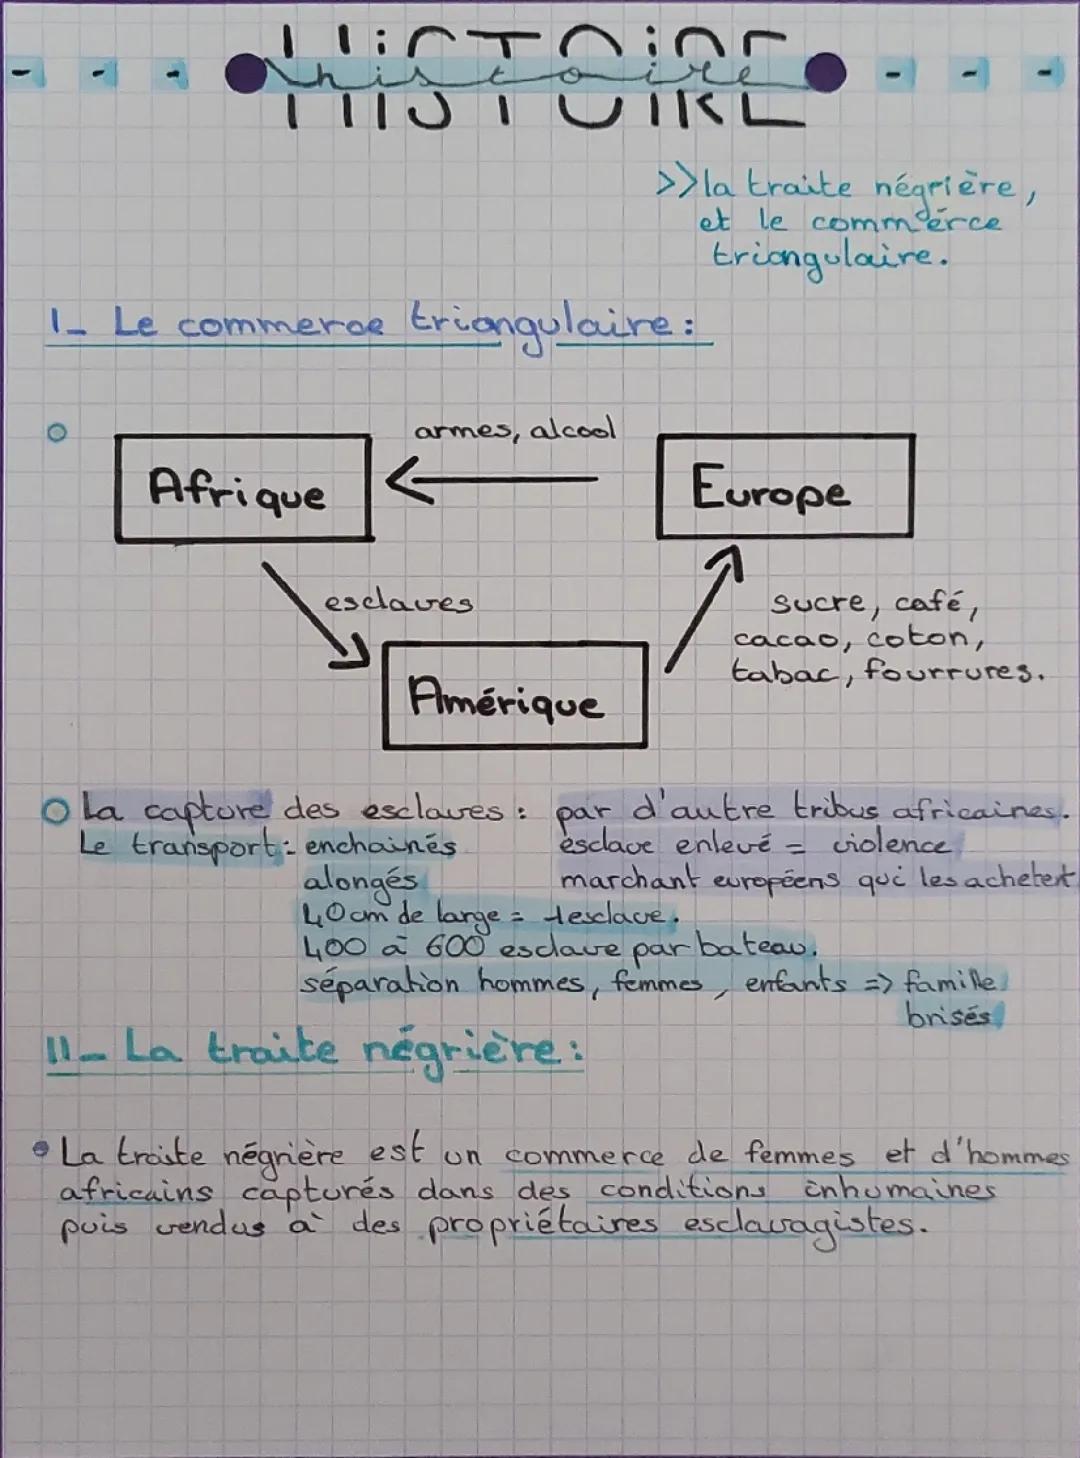 HISTOIRE
histoire
>>la traite négrière,
et le commerce
triangulaire.
I- Le commerce triangulaire:
armes, alcool
Afrique
Europe
esclaves
sucre, café,
cacao, coton,
tabac, fourrures.
Amérique
La capture des esclaves : par d'autre tribus africaines.
Le transport : enchainés esclave enlevé = violence
alongés marchant européens qui les achetent
40 cm de large = 1 esclave.
400 à 600 esclave par bateau.
séparation hommes, femmes, enfants => famille
brisés
II- La traite négrière:
La traite négrière est un commerce de femmes et d'hommes
africains capturés dans des conditions inhumaines
puis vendus à des propriétaires esclavagistes.